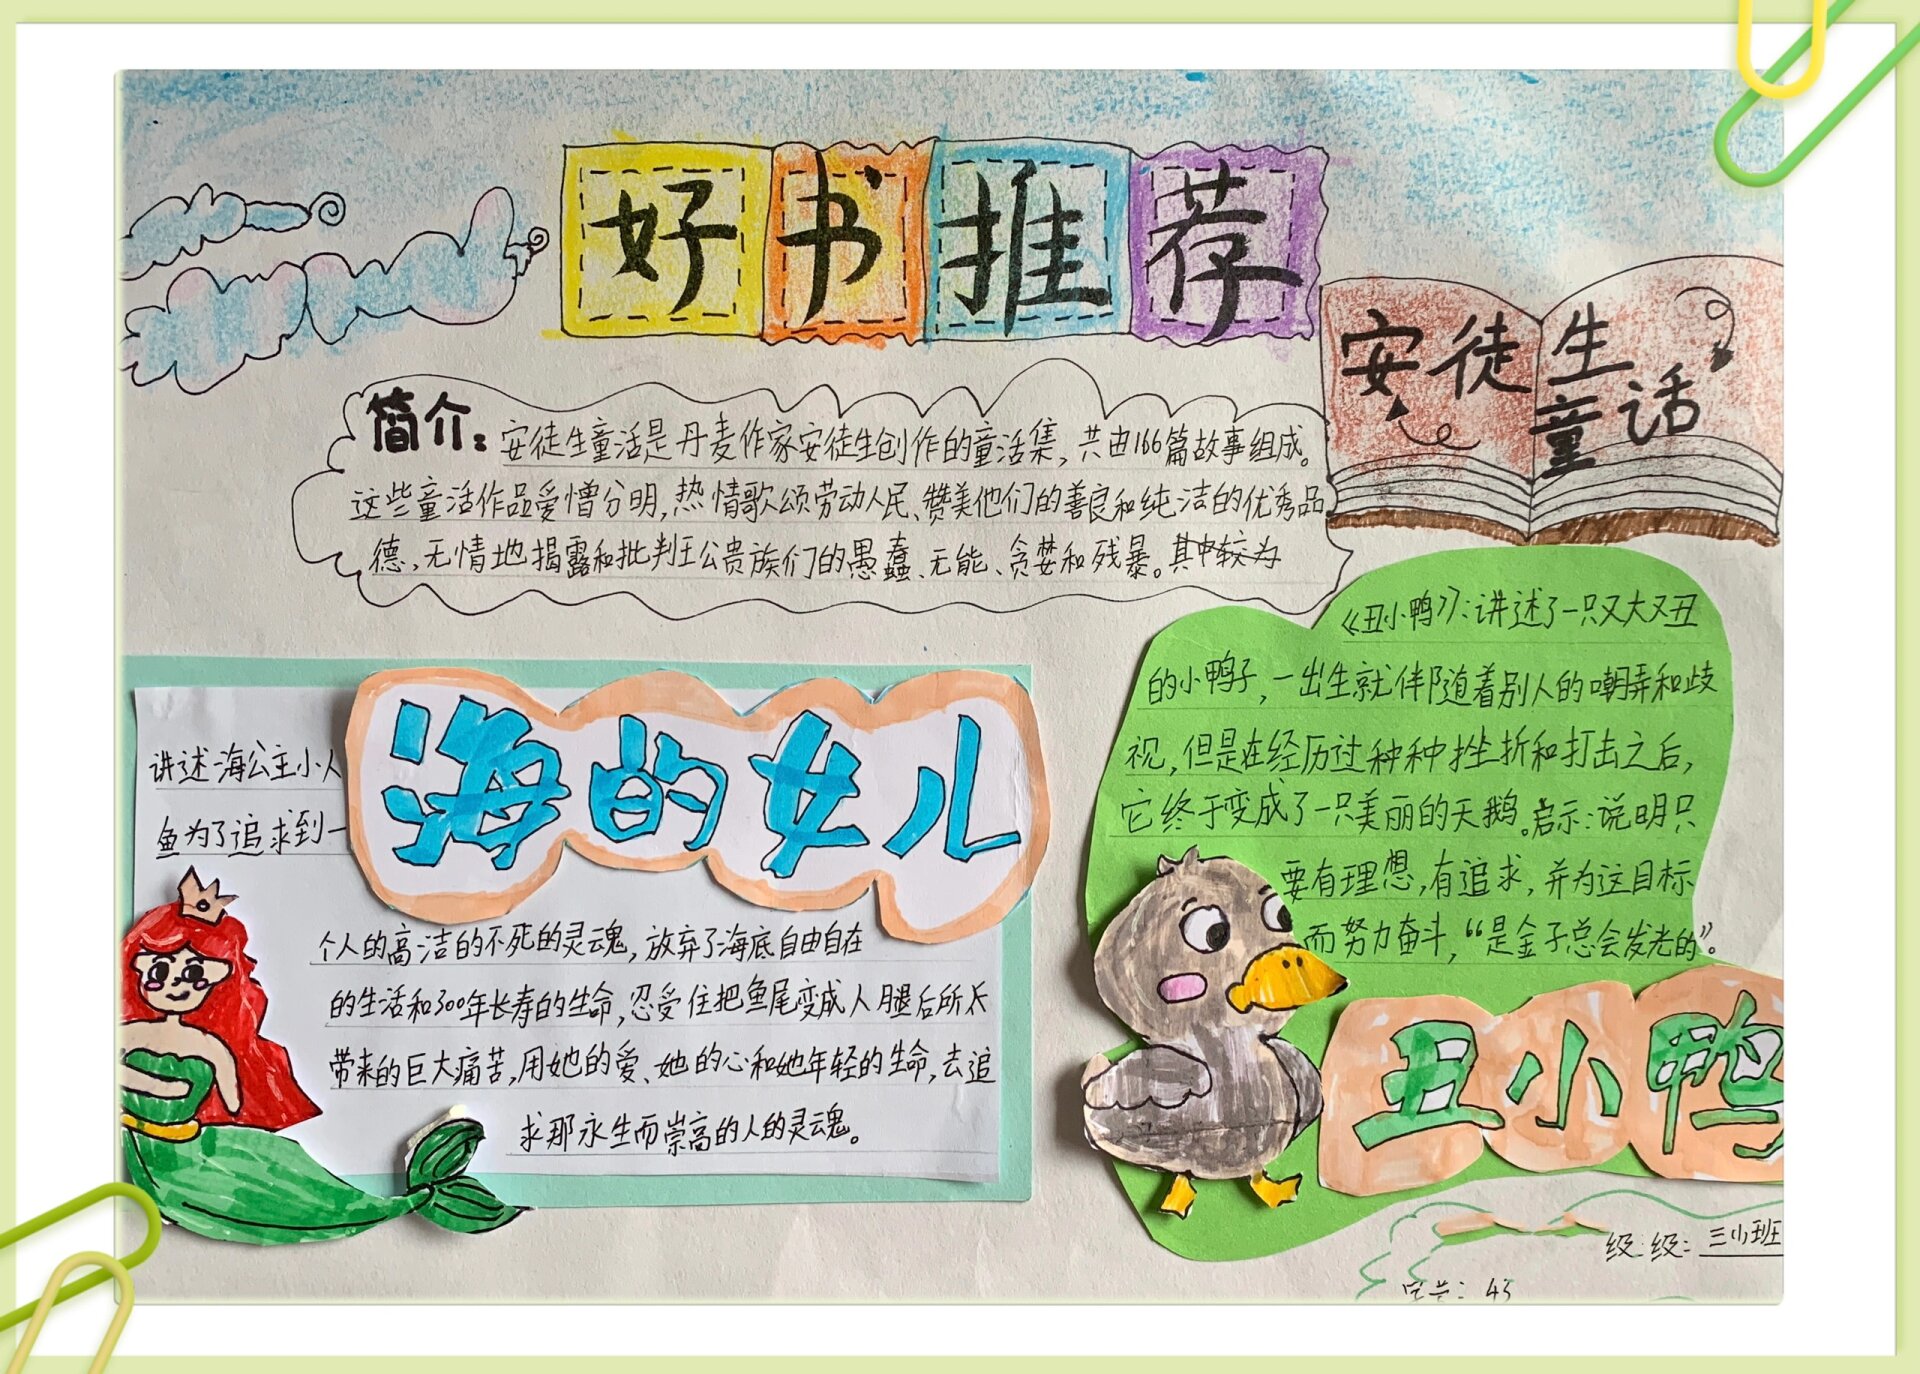 好书推荐
安徒生
童话
简介：安徒生童活是丹麦作家安徒生创作的童活集，共由166篇故事组成。
这些童活作品爱憎分明，热情歌颂劳动人民、赞美他们的善良和纯洁的优秀品
德，无情地揭露和批判王公贵族们的愚蠢、无能、贪婪和残暴。其中较为
海的女儿
讲述海公主小人
鱼为了追求到一
个人的高洁的不死的灵魂，放弃了海底自由自在
的生活和300年长寿的生命，忍受住把鱼尾变成人腿后所太
带来的巨大痛苦，用她的爱、她的心和她年轻的生命，去追
求那永生而崇高的人的灵魂。
《丑小鸭》：讲述了一只又大又丑
的小鸭子，一出生就伴随着别人的嘲弄和歧
视，但是在经历过种种挫折和打击之后，
它终于变成了一只美丽的天鹅。启示：说明只
要有理想，有追求，并为这目标
而努力奋斗，“是金子总会发光的”。
丑小鸭
级：三小班
43